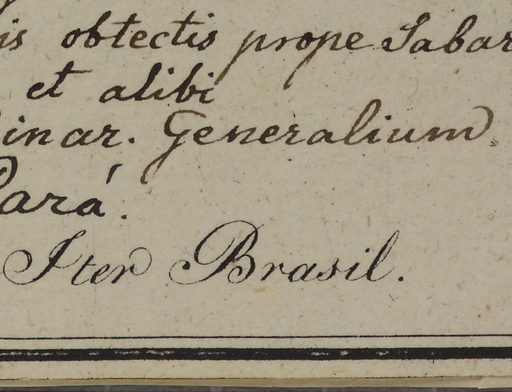 is obtectis prope Sabar
et alibi
inar. Generalium
Pará.
Iter Brasil.